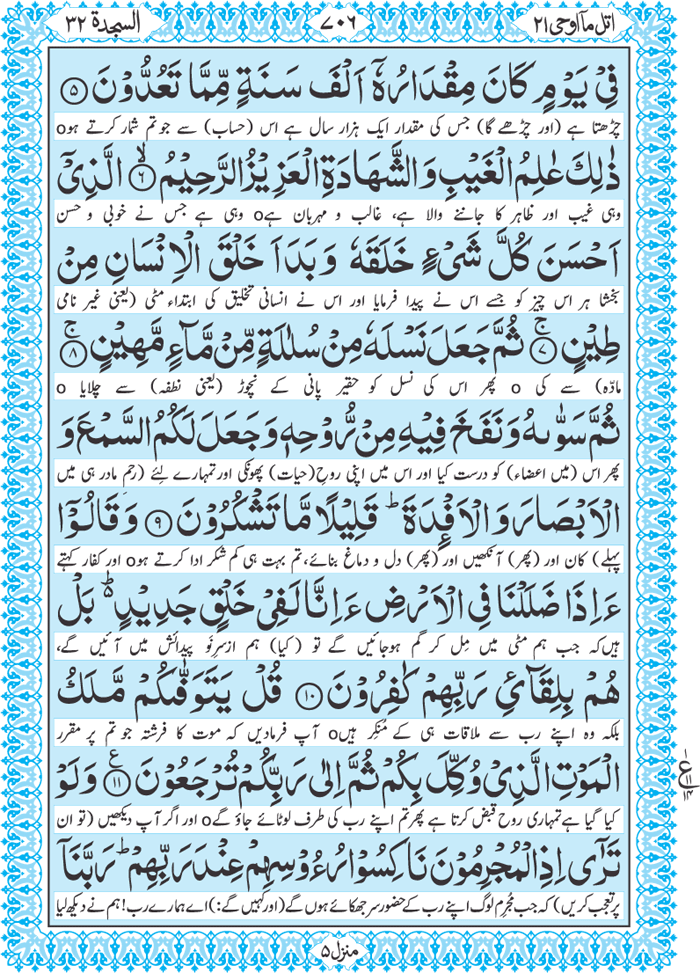 اتل مآ اوحی ۲۱ ۷۰۶ السجدة ۳۲
فِیْ یَوْمٍ كَانَ مِقْدَارُهٗۤ اَلْفَ سَنَةٍ مِّمَّا تَعُدُّوْنَ ۵
چڑھتا ہے (اور چڑھے گا) جس کی مقدار ایک ہزار سال ہے اس (حساب) سے جو تم شمار کرتے ہوo
ذٰلِكَ عٰلِمُ الْغَیْبِ وَالشَّهَادَةِ الْعَزِیْزُ الرَّحِیْمُ ۙ۶ الَّذِیْۤ
وہی غیب اور ظاہر کا جاننے والا ہے، غالب و مہربان ہےo وہی ہے جس نے خوبی و حسن
اَحْسَنَ كُلَّ شَیْءٍ خَلَقَهٗ وَ بَدَاَ خَلْقَ الْاِنْسَانِ مِنْ
بخشا ہر اس چیز کو جسے اس نے پیدا فرمایا اور اس نے انسانی تخلیق کی ابتداء مٹی (یعنی غیر نامی
طِیْنٍ ۚ۷ ثُمَّ جَعَلَ نَسْلَهٗ مِنْ سُلٰلَةٍ مِّنْ مَّآءٍ مَّهِیْنٍ ۚ۸
مادّہ) سے کی o پھر اس کی نسل کو حقیر پانی کے نچوڑ (یعنی نطفہ) سے چلایا o
ثُمَّ سَوّٰىهُ وَ نَفَخَ فِیْهِ مِنْ رُّوْحِهٖ وَ جَعَلَ لَكُمُ السَّمْعَ وَ
پھر اس (میں اعضاء) کو درست کیا اور اس میں اپنی روحِ (حیات) پھونکی اور تمہارے لئے (رحمِ مادر ہی میں
الْاَبْصَارَ وَ الْاَفْـِٕدَةَ ؕ قَلِیْلًا مَّا تَشْكُرُوْنَ ۹ وَ قَالُوْۤا
پہلے) کان اور (پھر) آنکھیں اور (پھر) دل و دماغ بنائے، تم بہت ہی کم شکر ادا کرتے ہوo اور کفار کہتے
ءَاِذَا ضَلَلْنَا فِی الْاَرْضِ ءَاِنَّا لَفِیْ خَلْقٍ جَدِیْدٍ ؕ۬ بَلْ
ہیں کہ جب ہم مٹی میں مِل کر گم ہوجائیں گے تو (کیا) ہم ازسرِنَو پیدائش میں آئیں گے،
هُمْ بِلِقَآئِ رَبِّهِمْ كٰفِرُوْنَ ۱۰ قُلْ یَتَوَفّٰىكُمْ مَّلَكُ
بلکہ وہ اپنے رب سے ملاقات ہی کے مُنکِر ہیںo آپ فرمادیں کہ موت کا فرشتہ جو تم پر مقرر
الْمَوْتِ الَّذِیْ وُكِّلَ بِكُمْ ثُمَّ اِلٰی رَبِّكُمْ تُرْجَعُوْنَ ۧ۱۱ وَ لَوْ
کیا گیا ہے تمہاری روح قبض کرتا ہے پھر تم اپنے رب کی طرف لوٹائے جاؤ گےo اور اگر آپ دیکھیں (تو ان
تَرٰۤی اِذِ الْمُجْرِمُوْنَ نَاكِسُوْا رُءُوْسِهِمْ عِنْدَ رَبِّهِمْ ؕ رَبَّنَاۤ
پر تعجب کریں) کہ جب مُجرِم لوگ اپنے رب کے حضور سر جھکائے ہوں گے (اور کہیں گے:) اے ہمارے رب! ہم نے دیکھ لیا
۱
ع
۱۱
۱۴
منزل ۵